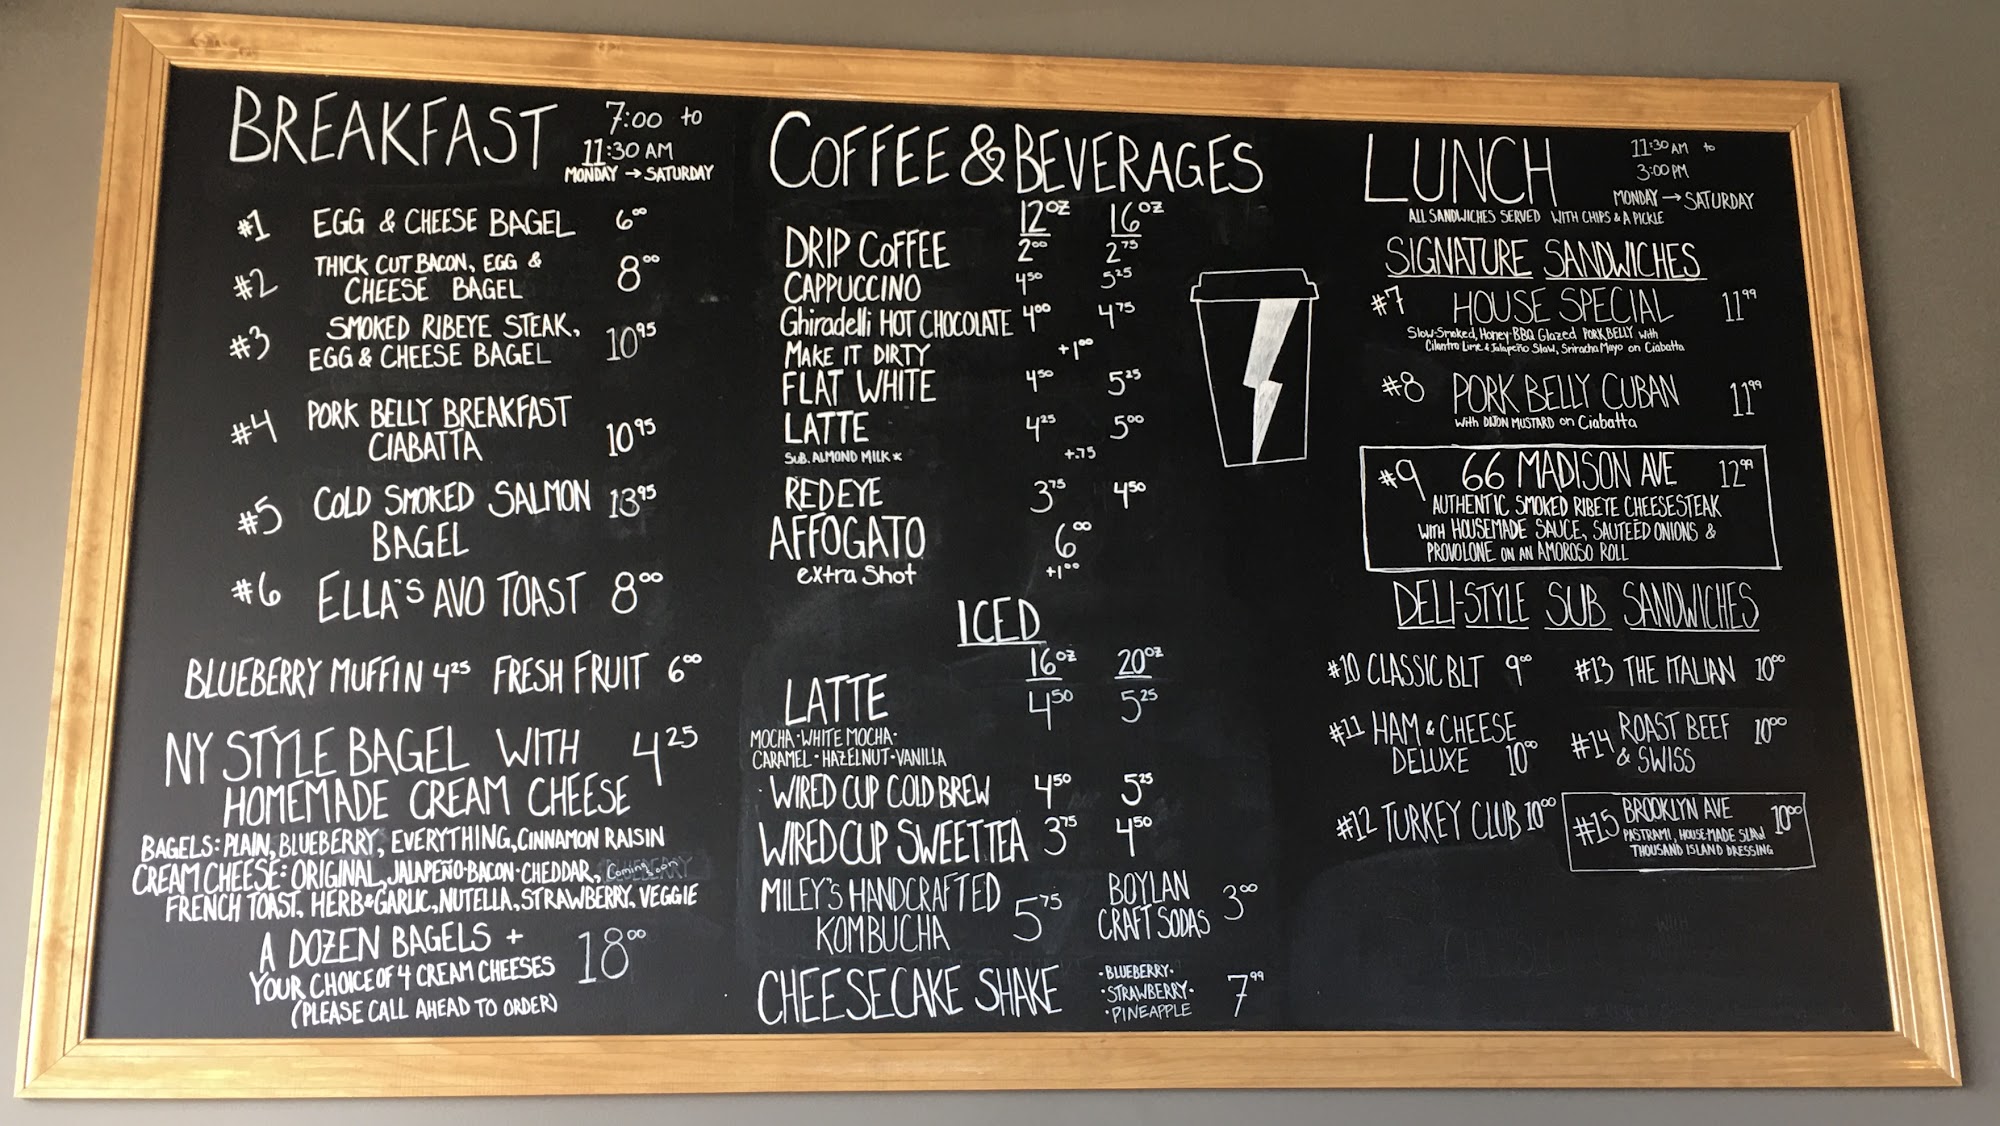 BREAKFAST
7:00 to
11:30 AM
MONDAY → SATURDAY
#1 EGG & CHEESE BAGEL 6⁰⁰
#2 THICK CUT BACON, EGG &
CHEESE BAGEL 8⁰⁰
#3 SMOKED RIBEYE STEAK,
EGG & CHEESE BAGEL 10⁹⁵
#4 PORK BELLY BREAKFAST
CIABATTA 10⁹⁵
#5 COLD SMOKED SALMON
BAGEL 13⁹⁵
#6 ELLA'S AVO TOAST 8⁰⁰
BLUEBERRY MUFFIN 4²⁵ FRESH FRUIT 6⁰⁰
NY STYLE BAGEL WITH 4²⁵
HOMEMADE CREAM CHEESE
BAGELS: PLAIN, BLUEBERRY, EVERYTHING, CINNAMON RAISIN
CREAM CHEESE: ORIGINAL, JALAPEÑO-BACON-CHEDDAR, BLUEBERRY Coming soon
FRENCH TOAST, HERB & GARLIC, NUTELLA, STRAWBERRY, VEGGIE
A DOZEN BAGELS +
YOUR CHOICE OF 4 CREAM CHEESES 18⁰⁰
(PLEASE CALL AHEAD TO ORDER)
COFFEE & BEVERAGES
12OZ 16OZ
DRIP COFFEE 2⁰⁰ 2⁷⁵
CAPPUCCINO 4⁵⁰ 5²⁵
Ghiradelli HOT CHOCOLATE 4⁰⁰ 4⁷⁵
MAKE IT DIRTY +1⁰⁰
FLAT WHITE 4⁵⁰ 5²⁵
LATTE 4²⁵ 5⁰⁰
SUB. ALMOND MILK * +.75
REDEYE 3⁷⁵ 4⁵⁰
AFFOGATO 6⁰⁰
extra Shot +1⁰⁰
ICED
16OZ 20OZ
LATTE 4⁵⁰ 5²⁵
MOCHA · WHITE MOCHA ·
CARAMEL · HAZELNUT · VANILLA
WIRED CUP COLD BREW 4⁵⁰ 5²⁵
WIRED CUP SWEET TEA 3⁷⁵ 4⁵⁰
MILEY'S HANDCRAFTED
KOMBUCHA 5⁷⁵
BOYLAN
CRAFT SODAS 3⁰⁰
CHEESECAKE SHAKE 7⁹⁹
· BLUEBERRY ·
· STRAWBERRY ·
· PINEAPPLE
LUNCH
11:30 AM to
3:00 PM
MONDAY → SATURDAY
ALL SANDWICHES SERVED WITH CHIPS & A PICKLE
SIGNATURE SANDWICHES
#7 HOUSE SPECIAL 11⁹⁹
Slow-Smoked, Honey-BBQ Glazed PORK BELLY with
Cilantro Lime & Jalapeño Slaw, Sriracha Mayo on Ciabatta
#8 PORK BELLY CUBAN 11⁹⁹
with DIJON MUSTARD on Ciabatta
#9 66 MADISON AVE 12⁹⁹
AUTHENTIC SMOKED RIBEYE CHEESESTEAK
WITH HOUSEMADE SAUCE, SAUTEED ONIONS &
PROVOLONE ON AN AMOROSO ROLL
DELI-STYLE SUB SANDWICHES
#10 CLASSIC BLT 9⁰⁰
#11 HAM & CHEESE
DELUXE 10⁰⁰
#12 TURKEY CLUB 10⁰⁰
#13 THE ITALIAN 10⁰⁰
#14 ROAST BEEF
& SWISS 10⁰⁰
#15 BROOKLYN AVE 10⁰⁰
PASTRAMI, HOUSE-MADE SLAW
THOUSAND ISLAND DRESSING